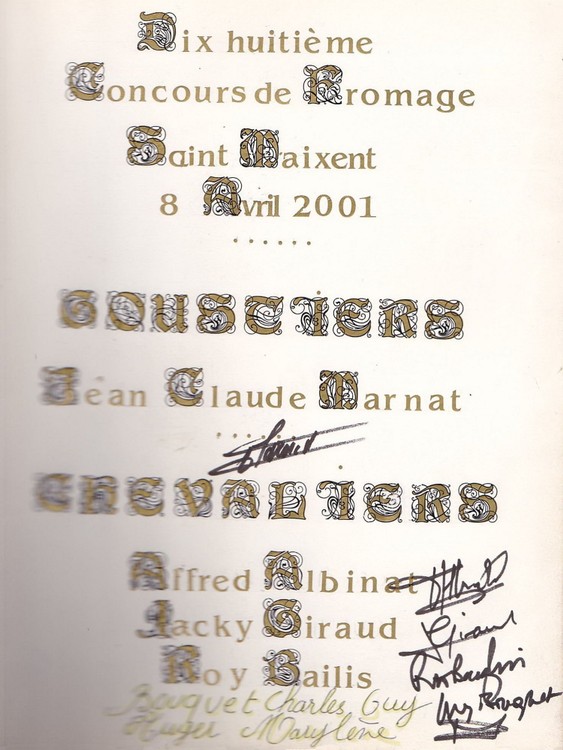 Dix huitième
Concours de Fromage
Saint Maixent
8 Avril 2001
......
GOUSTIERS
Jean Claude Marnat
......
CHEVALIERS
Alfred Albinat
Jacky Giraud
Giraud
Roy Bailis
Bouquet Charles Guy
Huger Marylène